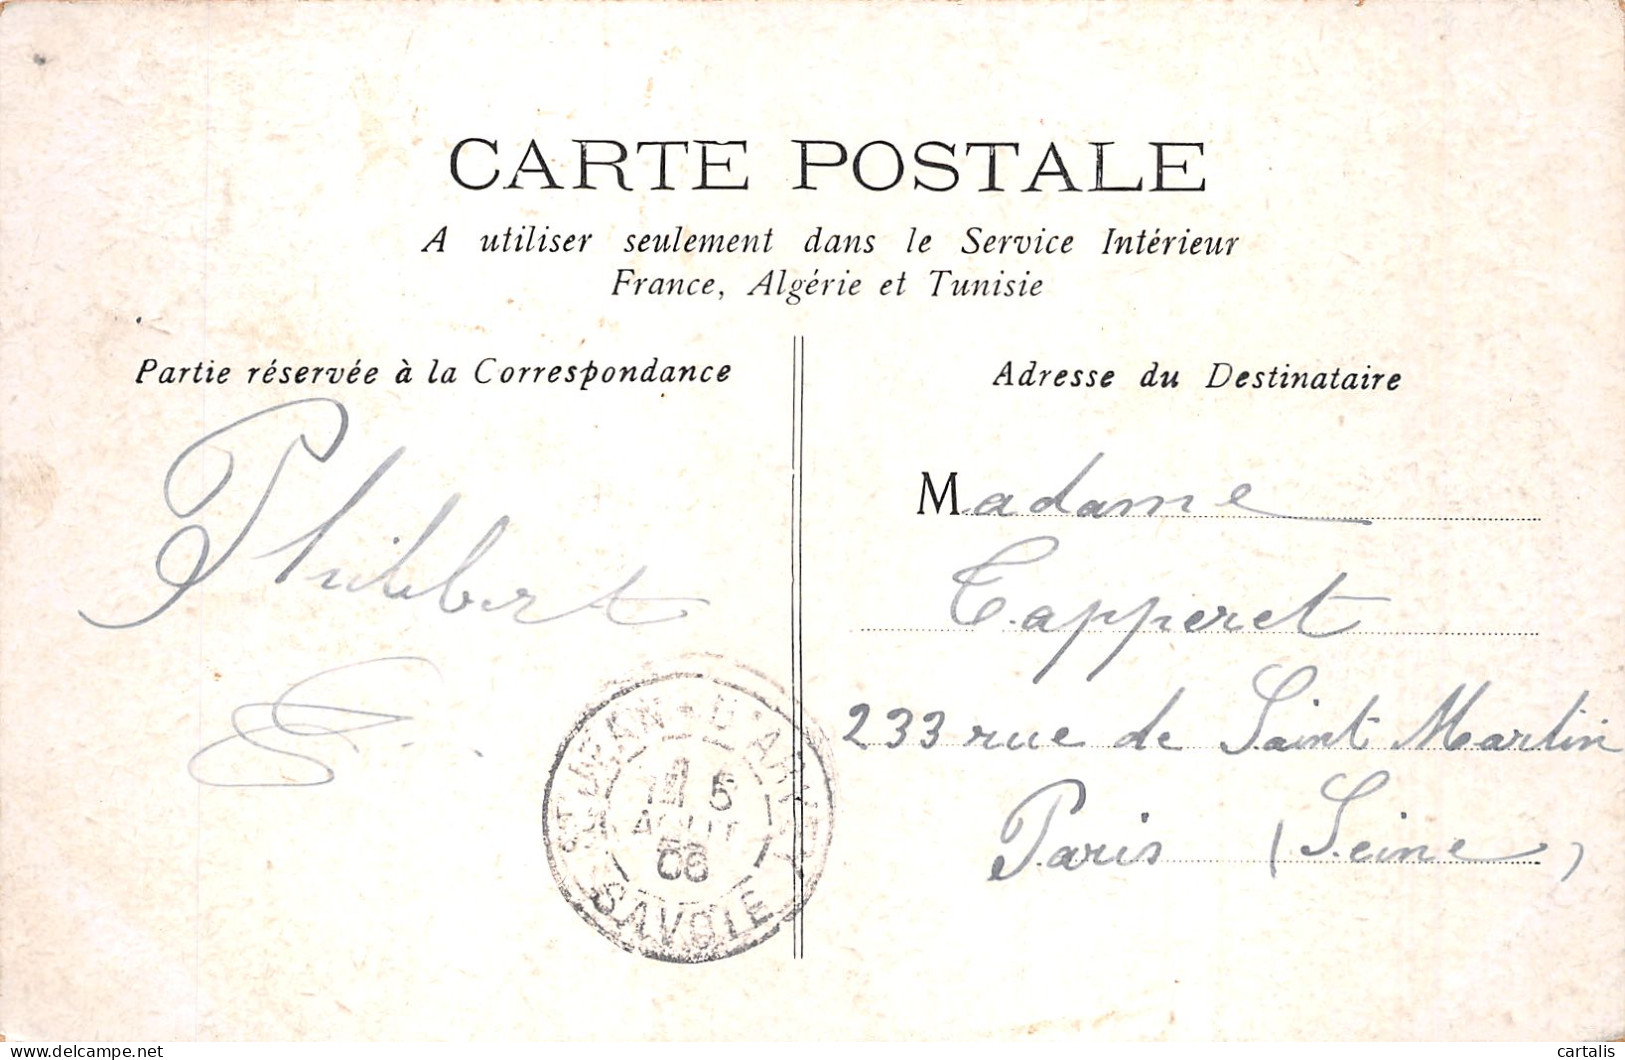 CARTE POSTALE
A utiliser seulement dans le Service Intérieur
France, Algérie et Tunisie
Partie réservée à la Correspondance
Philibert
Adresse du Destinataire
Madame
Tapperet
233 rue de Saint Martin
Paris (Seine)
5
AOUT
06
SAVOIE
www.delcampe.net
cartalis